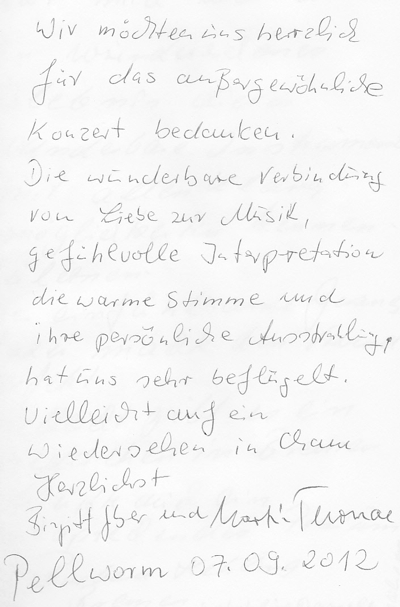 Wir möchten uns herzlich
für das außergewöhnliche
Konzert bedanken.
Die wunderbare Verbindung
von Liebe zur Musik,
gefühlvolle Interpretation
die warme Stimme und
ihre persönliche Ausstrahlung,
hat uns sehr beflügelt.
Vielleicht auf ein
Wiedersehen in Cham
Herzlichst
Birgitt und Martin
Pellworm 07.09.2012